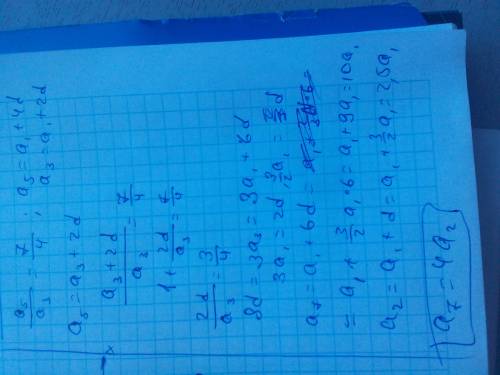 a₅/a₃ = 7/4 ; a₅ = a₁ + 4d
a₃ = a₁ + 2d
a₅ = a₃ + 2d
(a₃ + 2d)/a₃ = 7/4
1 + 2d/a₃ = 7/4
2d/a₃ = 3/4
8d = 3a₃ = 3a₁ + 6d
3a₁ = 2d, 3/2 a₁ = d
a₇ = a₁ + 6d =
= a₁ + 3/2 a₁ · 6 = a₁ + 9a₁ = 10a₁
a₂ = a₁ + d = a₁ + 3/2 a₁ = 2,5a₁
a₇ = 4a₂